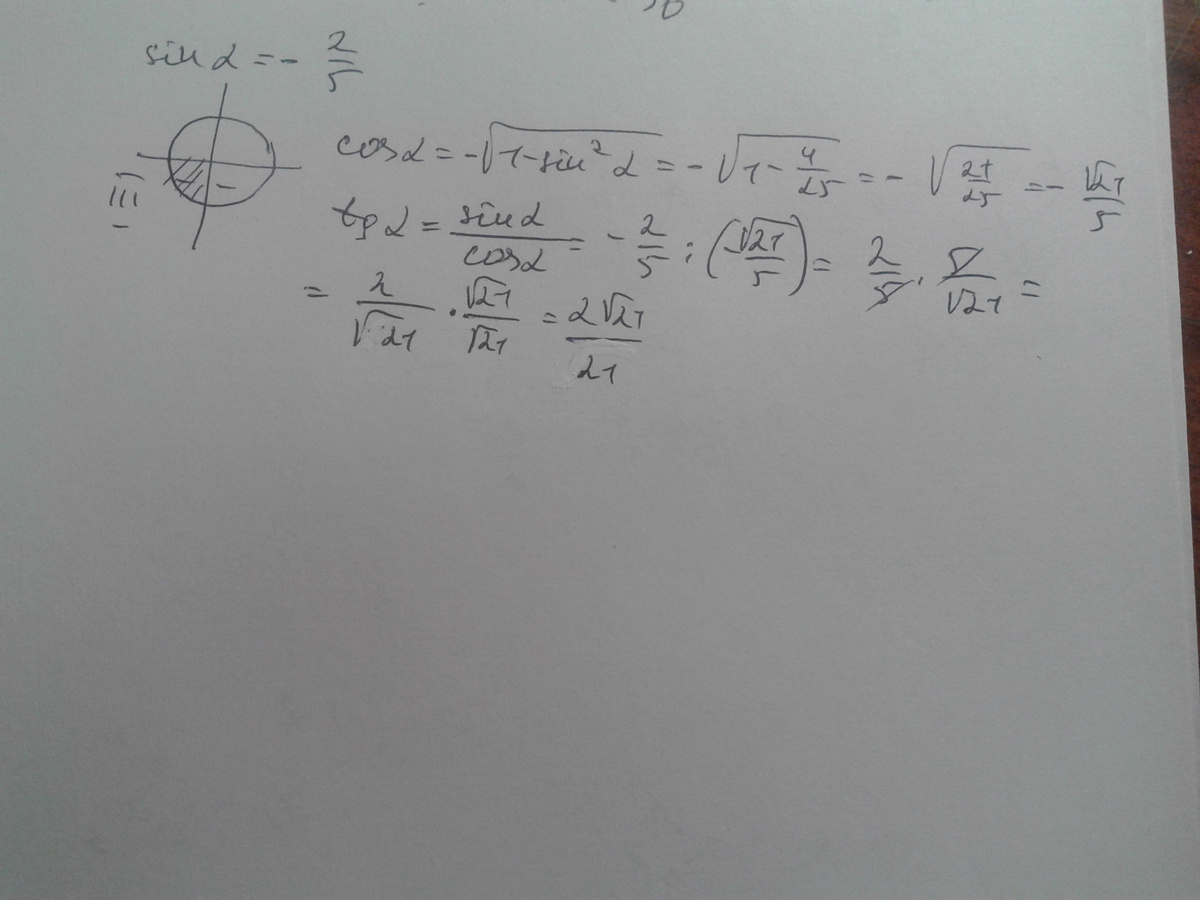 sin α = - 2/5
cos α = -√(1-sin² α) = -√(1- 4/25) = - √(21/25) = - √21/5
III
-
-
tg α = sin α/cos α = - 2/5 : (-√21/5) = 2/5 · 5/√21 =
= 2/√21 · √21/√21 = 2√21/21